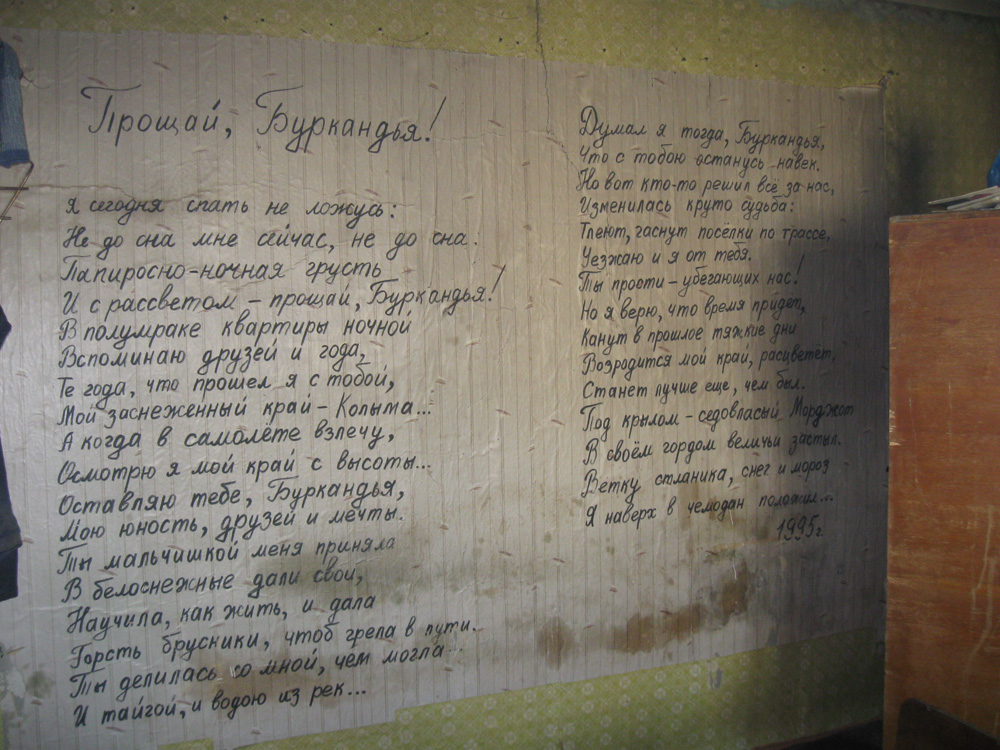 Прощай, Буркандья!
Я сегодня спать не ложусь:
Не до сна мне сейчас, не до сна.
Папиросно-ночная грусть
И с рассветом – прощай, Буркандья!
В полумраке квартиры ночной
Вспоминаю друзей и года,
Те года, что прошел я с тобой,
Мой заснеженный край – Колыма...
А когда в самолёте взлечу,
Осмотрю я мой край с высоты...
Оставляю тебе, Буркандья,
Мою юность, друзей и мечты.
Ты мальчишкой меня приняла
В белоснежные дали свои,
Научила, как жить, и дала
Горсть брусники, чтоб грела в пути.
Ты делилась со мной, чем могла...
И тайгой, и водою из рек...
Думал я тогда, Буркандья,
Что с тобою останусь навек.
Но вот кто-то решил всё за нас,
Изменилась круто судьба:
Тлеют, гаснут посёлки по трассе,
Уезжаю и я от тебя.
Ты прости – убегающих нас!
Но я верю, что время придет,
Канут в прошлое тяжкие дни
Возродится мой край, расцветет,
Станет лучше еще, чем был.
Под крылом – седовласый Морджот
В своём гордом величьи застыл.
Ветку стланика, снег и мороз
Я наверх в чемодан положил...
1995г.